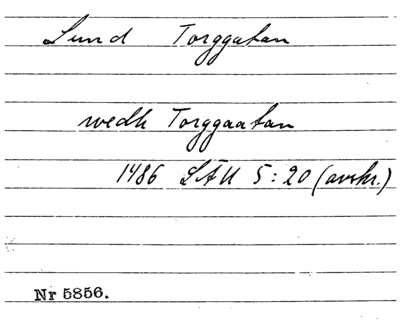 Lund Torggatan
wedh Torggaatan
1486 LÄU 5:20 (avskr.)
Nr 5856.